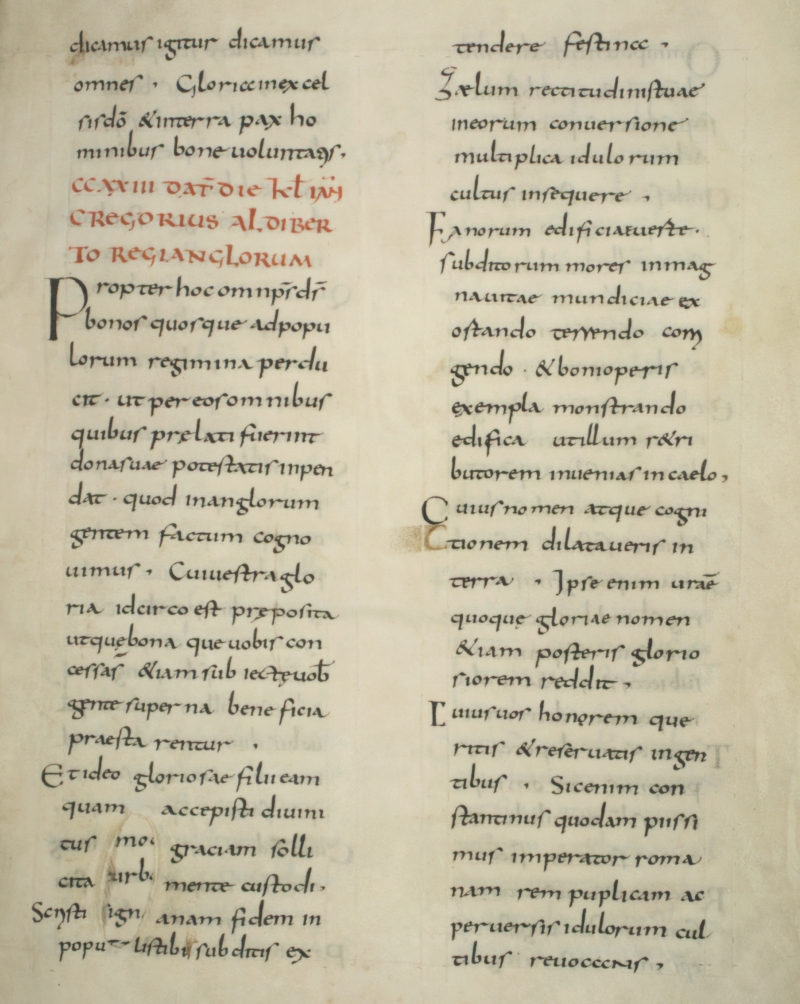 dicamus igitur dicamus
omnes . Gloriain excel
sis dō & interra pax ho
minibus bone uoluntatis.
CCXXIII DAT DIE KL IAN
GREGORIUS ALDIBER
TO REGI ANGLORUM
Propter hoc omnips ds
bonos quosque adpopu
lorum regimina perdu
cit . ut per eos omnibus
quibus pręlati fuerint
dona suae potestatis inpen
dat . quod in anglorum
gentem factum cogno
uimus . Cui uestra glo
ria idcirco est pręposita
ut quę bona que uobis con
cessa s &iam sub iectę uob
gente superna beneficia
praesta rentur .
Et ideo gloriosae filii eam
quam accepisti diuini
tus graciam solli
cita mente custodi .
anam fidem in
subditis ex
tendere festina .
Zælum rectitudinis tuae
in eorum conuersione
multiplica idulorum
cultus insequere .
Fanorum edificia euerte .
subditorum mores in mag
na uitae mundiciae ex
ostando terrendo corri
gendo . & boni operis
exempla monstrando
edifica ut illum r&ri
butorem inuenias in caelo ,
Cuius nomen atque cogni
tionem dilataueris in
terra . Ipse enim uraē
quoquę gloriae nomen
&iam posteris glorio
siorem reddit .
Cuius uos honorem que
ritis & reseruatis in gen
tibus . Sic enim con
stantinus quodam piissi
mus imperator roma
nam rem puplicam ac
peruersis idulorum cul
tibus reuocans ,